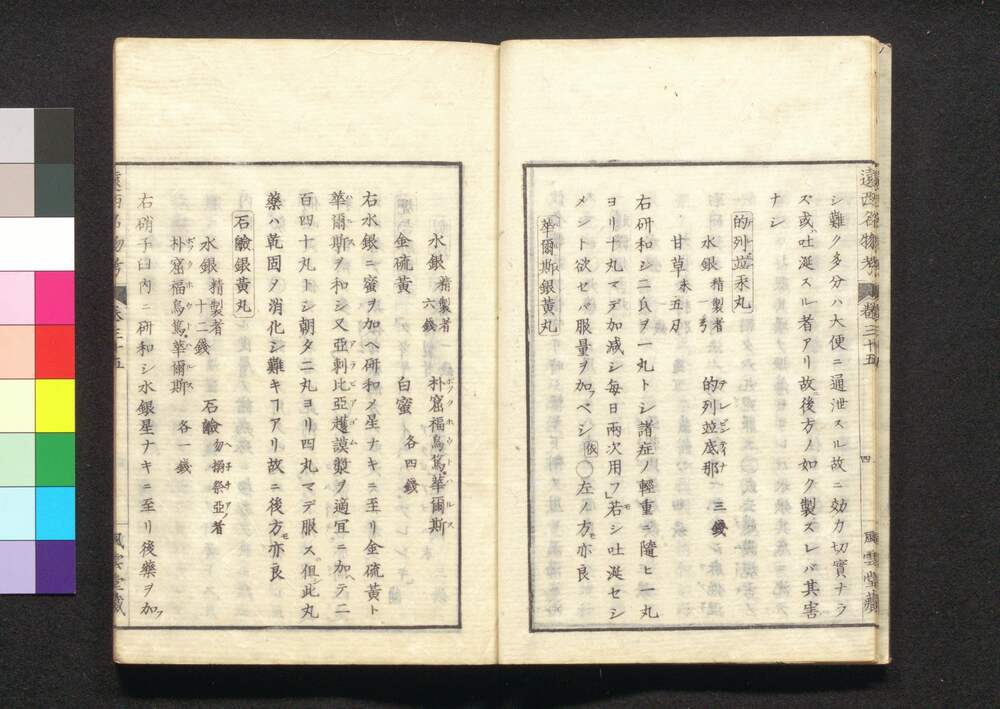 遠西名物考 卷三十五 四 風雲堂藏
シ難ク多分ハ大便ニ通泄スル故ニ効力切實ナラ
ズ或ハ吐涎スル者アリ故ニ後方ノ如ク製スレバ其害
ナシ
的列並汞丸
水銀 精製者 一弓 的列並底那 テレビンテイナ 三錢
甘草 末 五刃
右研和シ二氏ヲ一丸トシ諸症ノ輕重ニ隨ヒ一丸
ヨリ十丸マデ加減シ毎日兩次用フ」若シ吐涎セシ
メント欲セバ服量ヲ加フベシ 依 〇左ノ方モ亦良
華爾斯銀黄丸
水銀 精製者 六錢 朴窟福烏篤華爾斯 ポックホウトハルス
金硫黄 白蜜 各四錢
右水銀ニ蜜ヲ加ヘ研和メ星ナキニ至リ金硫黄ト
華爾斯ヲ和シ又亞剌比亞護謨漿ヲ適宜ニ加ヘテ二
百四十丸トシ朝夕二丸ヨリ四丸マデ服ス但此丸
藥ハ乾固メ消化シ難キヿアリ故ニ後方モ亦良
石鹼銀黄丸
水銀 精製者 十二錢 石鹼 勿搦祭亞ノ者
朴窟福烏篤華爾斯 ポックホウトハルス 各一錢
右硝子臼内ニ研和シ水銀星ナキニ至リ後藥ヲ加フ
遠西名物考 卷三十五 風雲堂藏